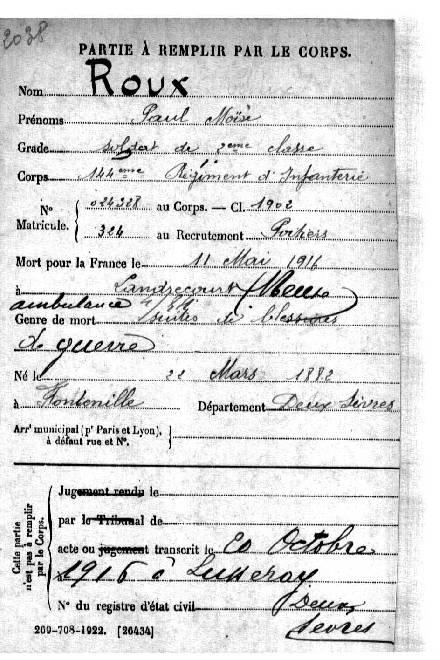 2038
PARTIE À REMPLIR PAR LE CORPS.
Nom ROUX
Prénoms Paul Moïse
Grade soldat de 2eme classe
Corps 144eme Régiment d'Infanterie
N° Matricule. 024328 au Corps. — Cl. 1902
324 au Recrutement Poitiers
Mort pour la France le 11 Mai 1916
à Landrecourt (Meuse)
ambulance
Genre de mort suites de blessures
de guerre
Né le 22 Mars 1882
à Fontenille Département Deux Sèvres
Arrt municipal (pr Paris et Lyon),
à défaut rue et N°.
Cette partie n'est pas à remplir par le Corps.
Jugement rendu le
par le Tribunal de
acte ou jugement transcrit le 20 Octobre
1916 à Lusseray
N° du registre d'état civil (Deux
Sèvres
269-708-1922. [26434]